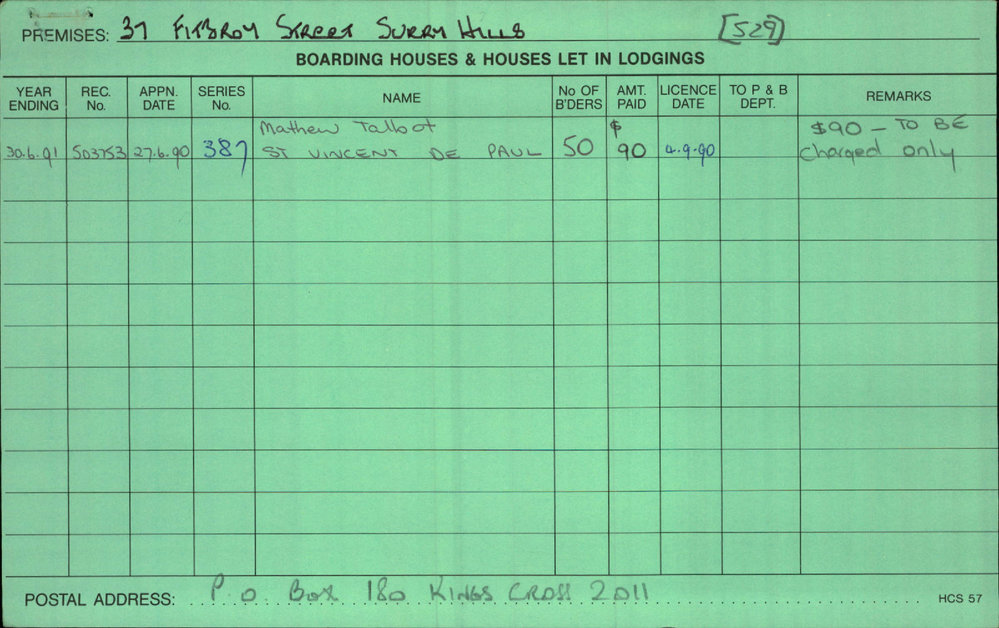 PREMISES: 37 Fitzroy Street Surry Hills [529]
BOARDING HOUSES & HOUSES LET IN LODGINGS
YEAR ENDING REC. No. APPN. DATE SERIES No. NAME No OF B'DERS AMT. PAID LICENCE DATE TO P & B DEPT. REMARKS
Mathew Talbot $ $90 – TO BE
30.6.91 503753 27.6.90 387 ST VINCENT DE PAUL 50 90 4.9.90 charged only
POSTAL ADDRESS: P.O. Box 180 KINGS CROSS 2011 HCS 57